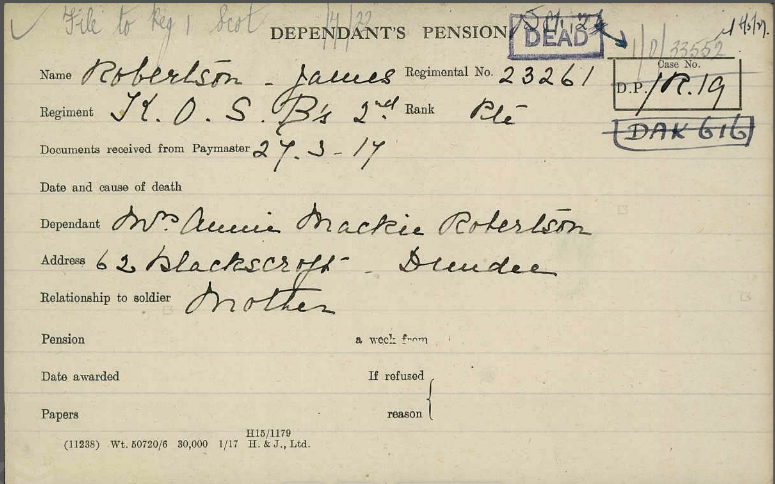 File to Reg 1 Scot 1/4/22
DEPENDANT'S PENSION
DEAD
1/D/33552
Name Robertson - James Regimental No. 23261
Case No.
D.P. 1R.19
Regiment K. O. S. B's 2nd Rank Pte
DAK 616
Documents received from Paymaster 27.3-17
Date and cause of death
Dependant Mrs Annie Mackie Robertson
Address 62 Blackscroft - Dundee
Relationship to soldier Mother
Pension a week from
Date awarded If refused
Papers reason
H15/1179
(11238) Wt. 50720/6 30,000 1/17 H. & J., Ltd.